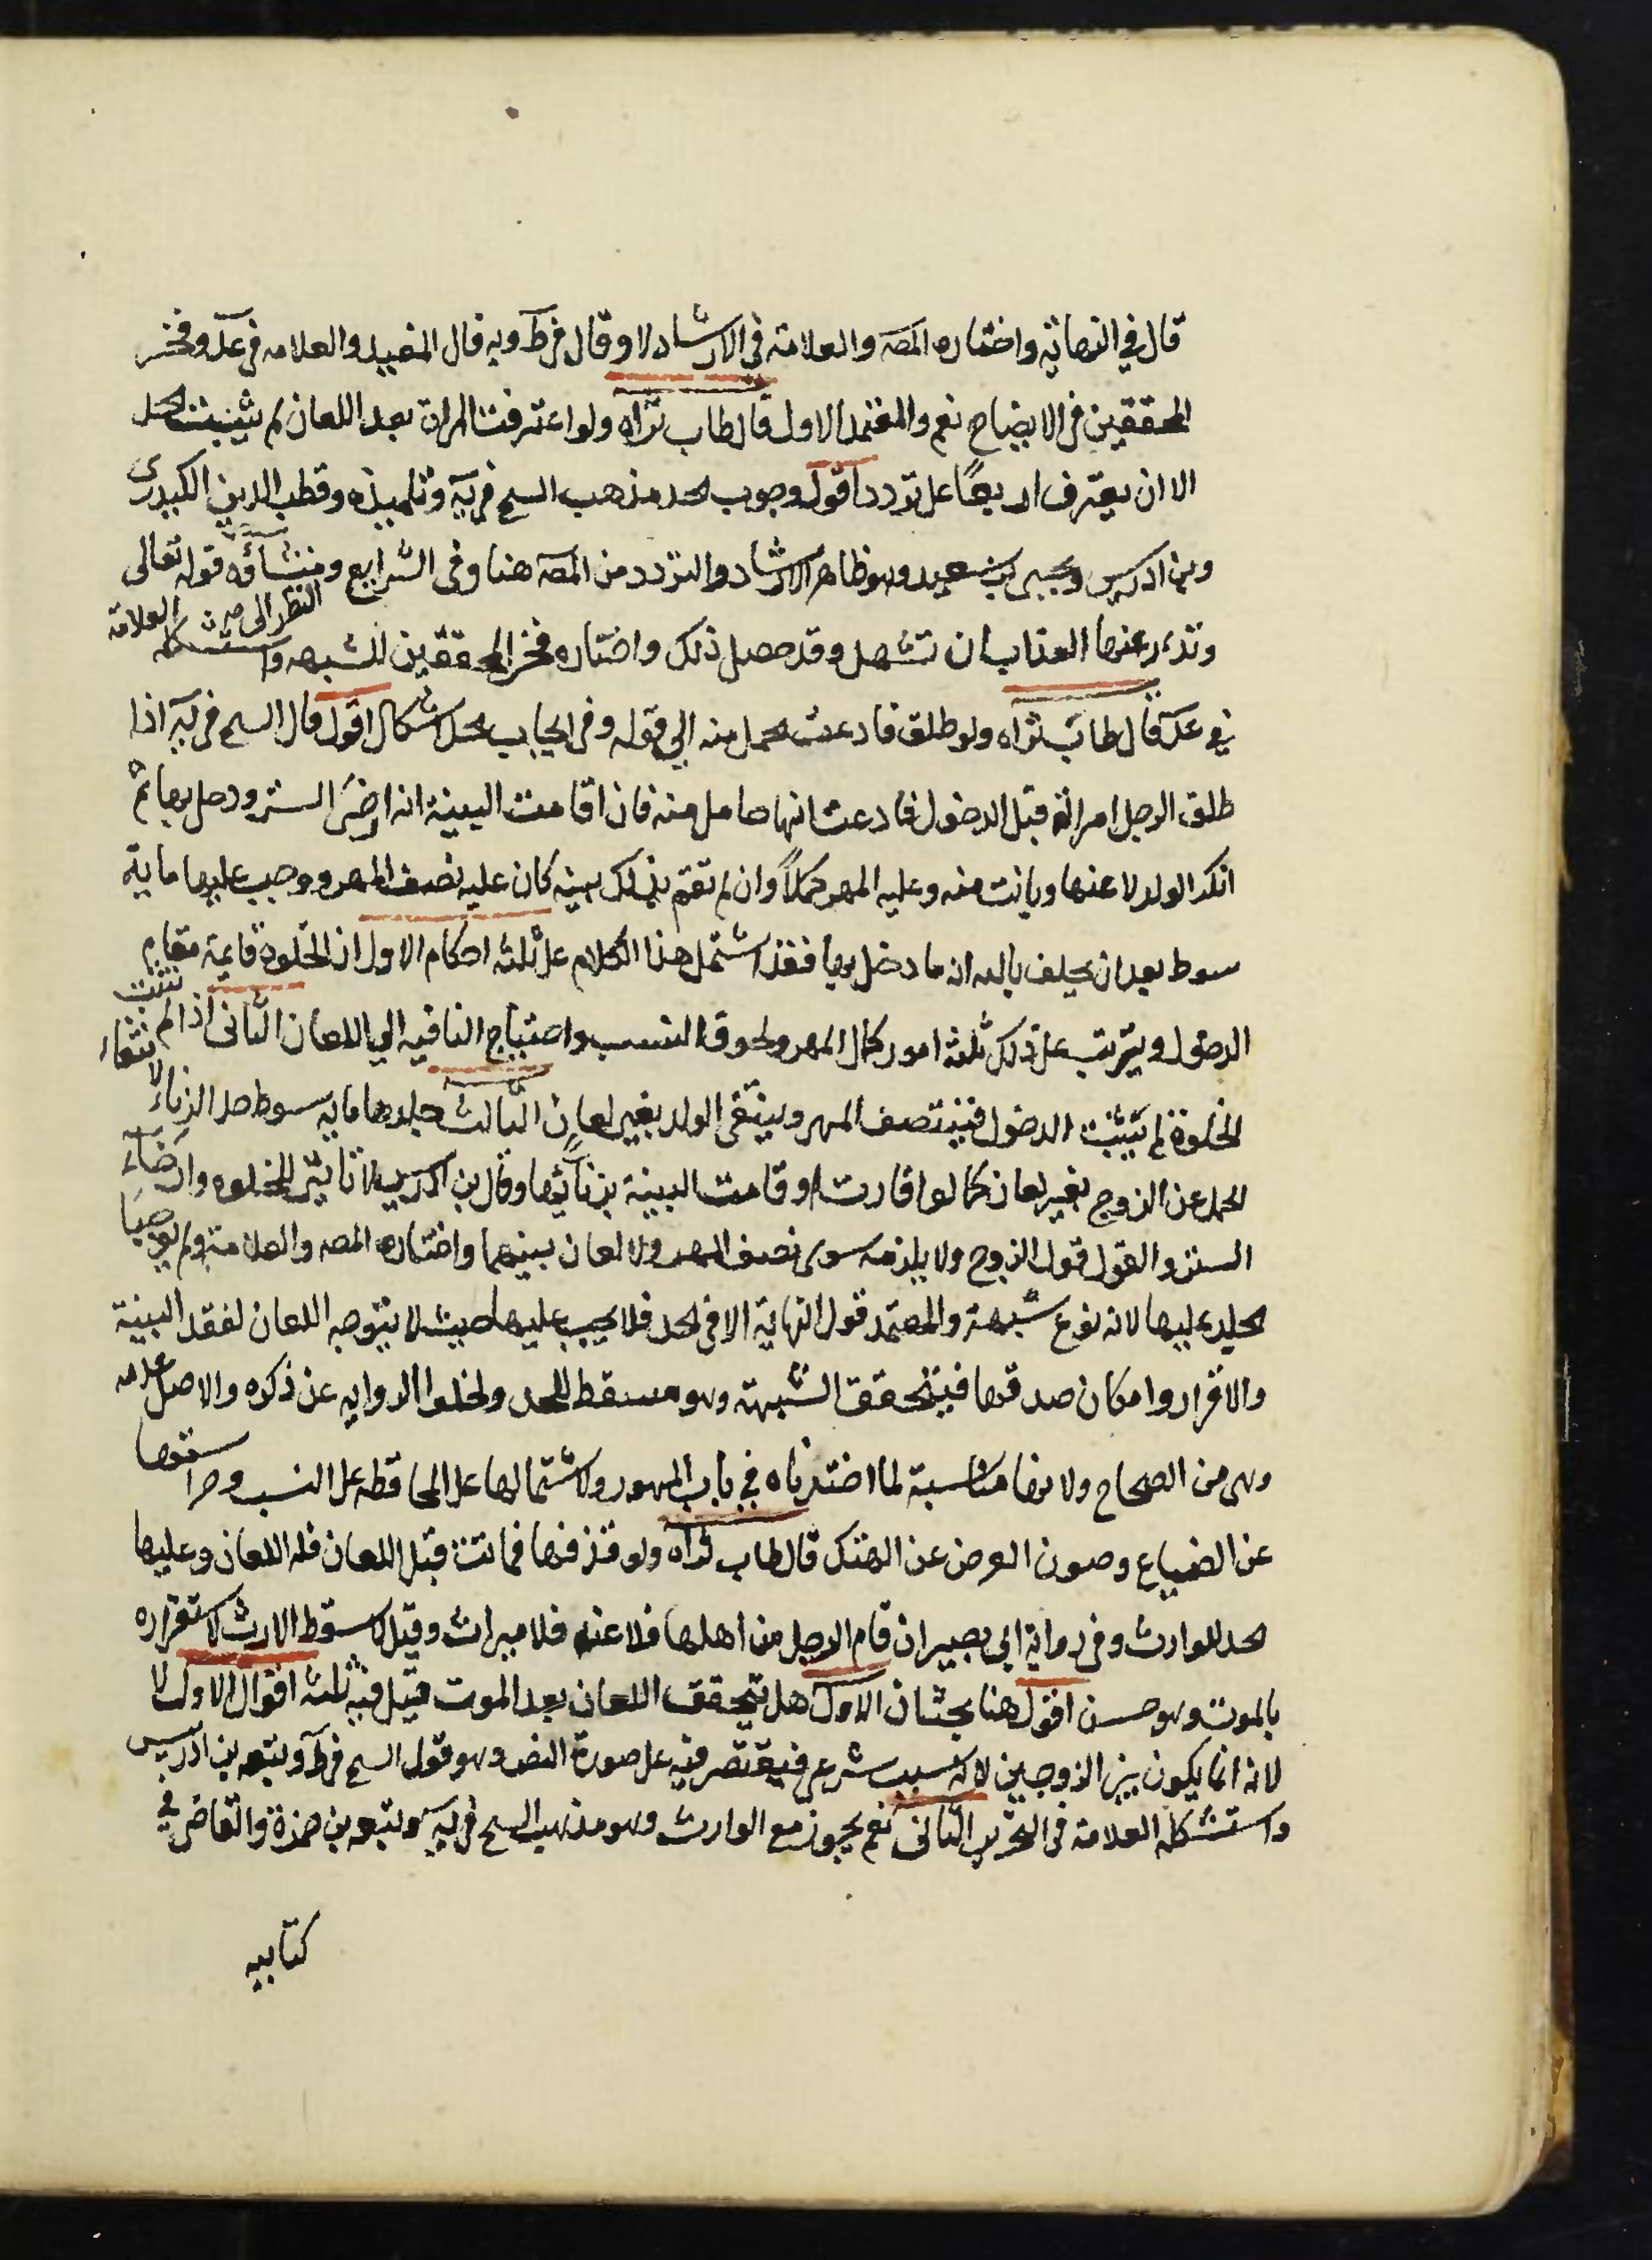 قال في النهاية واختاره المصه والعلامة في الارشاد لا وقال في ط وبه قال المفيد والعلامه في عد وفخر
المحققين في الايضاح نعم والمعتمد الاول قال طاب ثراه ولو اعترفت المراة بعد اللعان لم يثبت الحد
الا ان يعترف اربعًا على تردد اقول وجوب الحد مذهب الشيخ في يه وتلميذه وقطب الدين الكيدرى
وبن ادريس ويحيى بن سعيد وهو ظاهر الارشاد والتردد من المصه هنا وفى الشرايع ومنشاؤه قوله تعالى
ويدرء عنها العذاب ان تشهد وقد حصل ذلك واختاره فخر المحققين للشبهه واستشكله العلامة
النظر الى
في عد قال طاب ثراه ولو طلق فادعت الحمل منه الي قوله وفي ايجاب الجلد اشكال اقول قال الشيخ في يه اذا
طلق الرجل امراته قبل الدخول فادعت انها حامل منه فان اقامت البينة انه ارخى الستر ودخل بها ثم
انكر الولد لاعنها وبانت منه وعليه المهر كملًا وان لم تقم بذلك بينه كان عليه نصف المهر ووجب عليها ماية
سوط بعد ان يحلف بالله انه ما دخل بها فقد اشتمل هذا الكلام على ثلثه احكام الاول ان الخلوة قايمة مقام
الدخول ويترتب على ذلك ثلثه امور كمال المهر ولحوق النسب واحتياج النافيه الي اللعان الثانى اذا لم تثبت
الخلوة لم يثبت الدخول فينتصف المهر وينتفى الولد بغير لعان الثالث جلدها مايه سوط حد الزناء لانتفاء
الحمل عن الزوج بغير لعان كما لو اقرت او قامت البينة بزنائها وقال بن ادريس لا تاثير للخلوه وارخاء
الستر والقول قول الزوج ولا يلزمه سوى نصف المهر ولا لعان بينهما واختاره المصه والعلامة ولم يوجبا
الجلد عليها لانه نوع شبهة والمعتمد قول النهاية الا في الحد فلا يجب عليها حيث لا يتوجه اللعان لفقد البينة
والاقرار وامكان صدقها فيتحقق الشبهة وهو مسقط للحد ولخلو الروايه عن ذكره والاصل عدمه
وهى من الصحاح ولانها مناسبة لما اخترناه في باب المهور ولاشتمالها على المحافظه على النسب وحراستها
عن الضياع وصون العرض عن الهتك قال طاب ثراه ولو قذفها فماتت قبل اللعان فله اللعان وعليه
الحد للوارث وفي رواية ابي بصير ان قام الرجل من اهلها فلاعنه فلا ميراث وقيل لا يسقط الارث لاستقراره
بالموت وهو حسن اقول هنا بحثان الاول هل يتحقق اللعان بعد الموت قيل فيه ثلثه اقوال الاول لا
لانه انما يكون بين الزوجين لانه سبب شرعي فيقتصر فيه على صورة النص وهو قول الشيخ في ط وتبعه بن ادريس
واستشكله العلامة في التحرير الثانى نعم يجوز مع الوارث وهو مذهب الشيخ في يه وتبعه بن حمزة والقاضى في
كتابيه